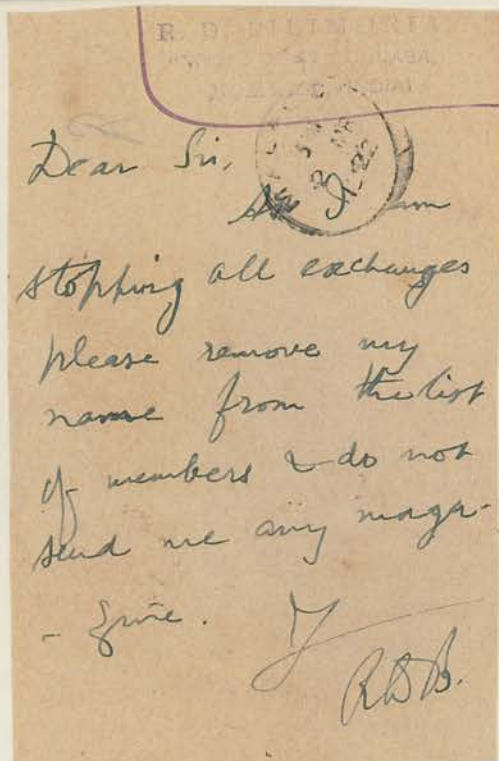 R. D.
Dear Sir,
As I am
stopping all exchanges
please remove my
name from the list
of members & do not
send me any maga-
- zine.
Y
RDB.